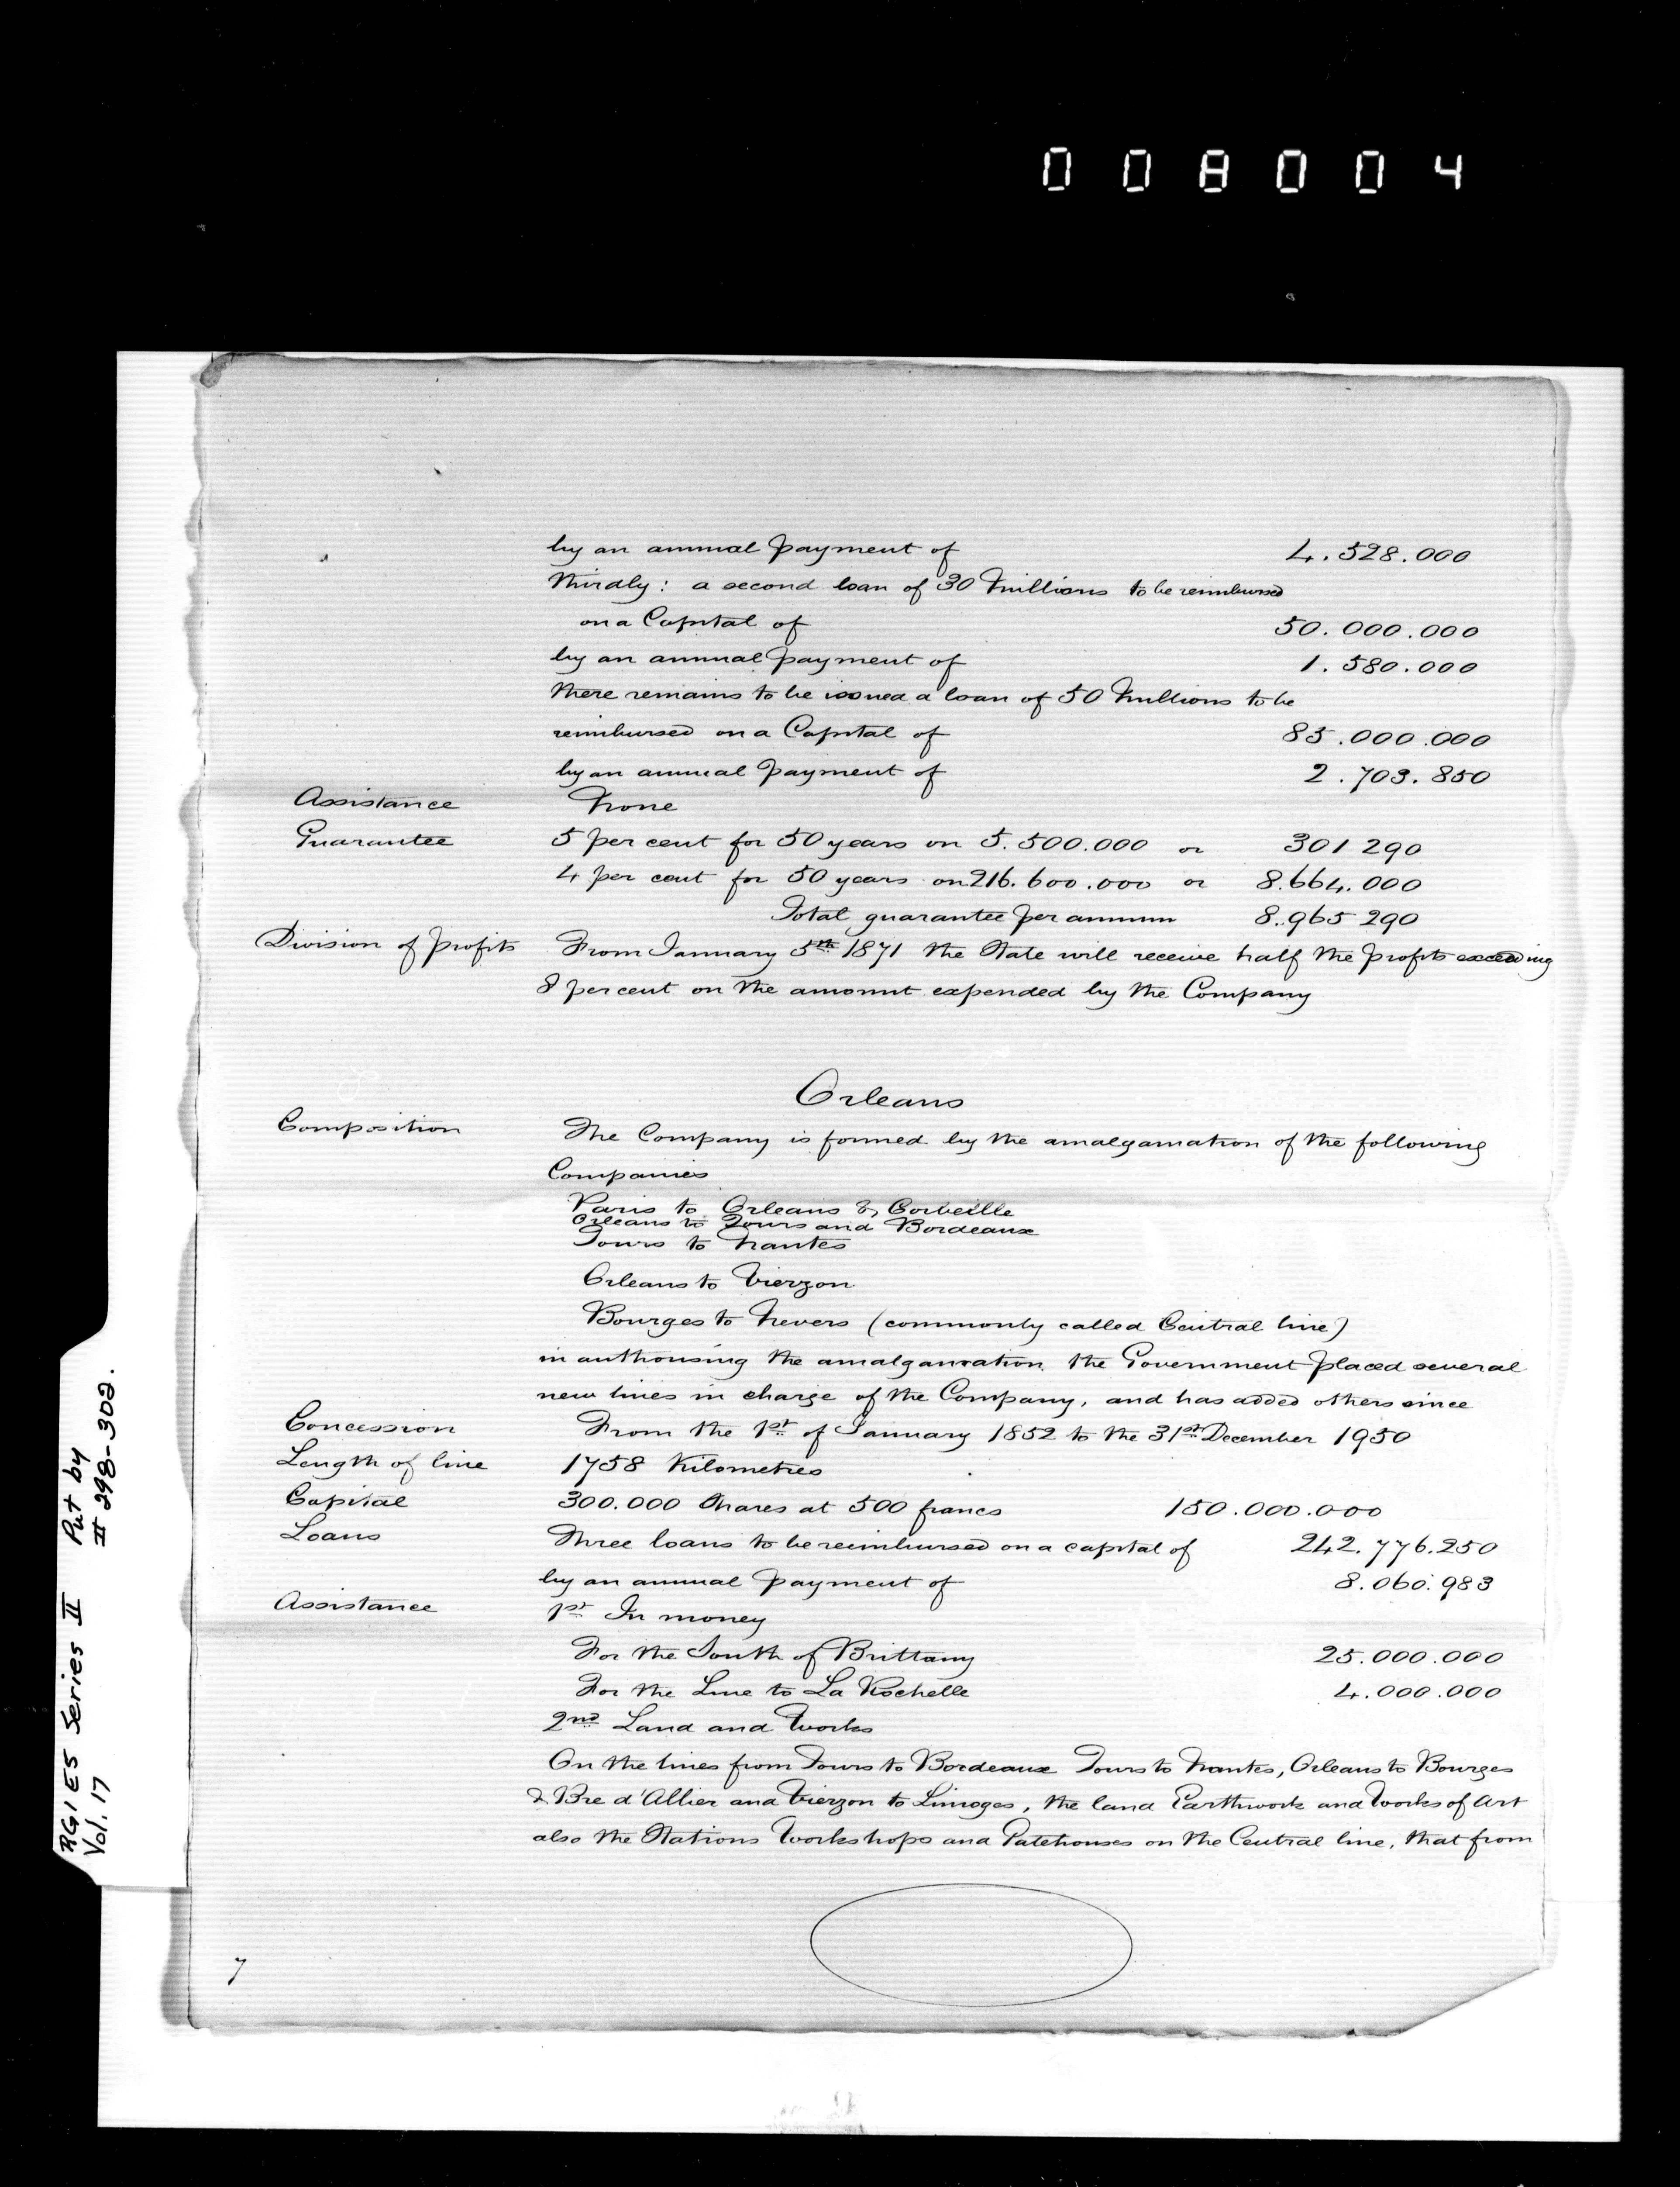 008004
by an annual payment of 4.528.000
thirdly: a second loan of 30 Millions to be reimbursed
on a Capital of 50.000.000
by an annual payment of 1.580.000
there remains to be issued a loan of 50 Millions to be
reimbursed on a Capital of 85.000.000
by an annual payment of 2.703.850
Assistance None
Guarantee 5 per cent for 50 years on 5.500.000 or 301 290
4 per cent for 50 years on 216.600.000 or 8.664.000
Total guarantee per annum 8.965 290
Division of profits From January 5th 1871 the State will receive half the profits exceeding
8 per cent on the amount expended by the Company
Orleans
Composition The Company is formed by the amalgamation of the following
Companies
Paris to Orleans & Corbeille
Orleans to Tours and Bordeaux
Tours to Nantes
Orleans to Vierzon
Bourges to Nevers (commonly called Central line)
in authorising the amalgamation the Government placed several
new lines in charge of the Company, and has added others since
Concession From the 1st of January 1852 to the 31st December 1950
Length of line 1758 Kilometres
Capital 300.000 Shares at 500 francs 150.000.000
Loans Three loans to be reimbursed on a capital of 242.776.250
by an annual payment of 8.060.983
Assistance 1st In money
For the South of Brittany 25.000.000
For the Line to La Rochelle 4.000.000
2nd Land and Works
On the lines from Tours to Bordeaux Tours to Nantes, Orleans to Bourges
& Bre d'Allier and Vierzon to Limoges, the land Earthwork and Works of Art
also the Stations Workshops and Gatehouses on the Central line, that from
7
RG1 E5 Series II Put by
Vol. 17 # 298-302.